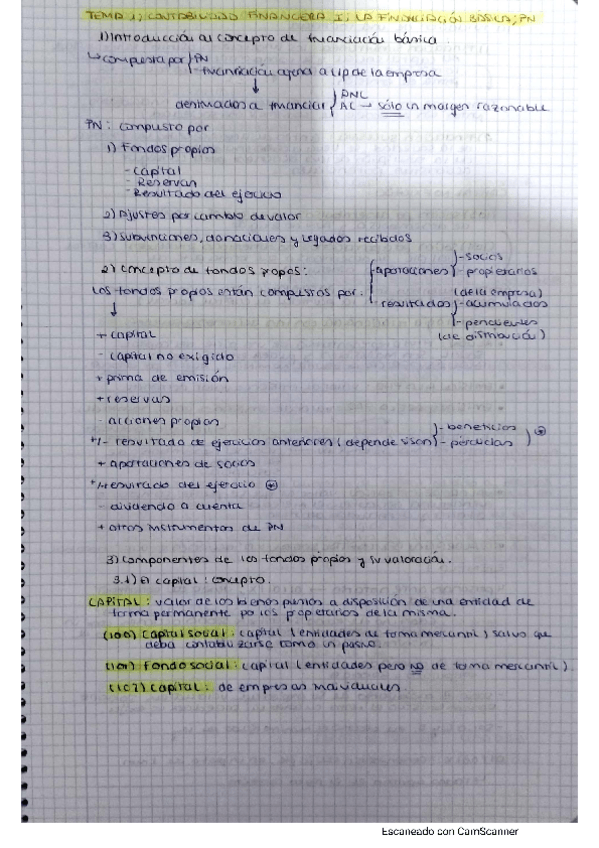 TEMA 1; CONTABILIDAD FINANCIERA I; LA FINANCIACIÓN BÁSICA; PN
1) Introducción al concepto de financiación básica.
↳ compuesta por } PN
- financiación ajena a l/p de la empresa
↓
destinados a financiar { PNC
AC → sólo un margen razonable
PN: compuesto por
1) Fondos propios
- capital
- Reservas
- Resultado del ejercicio
2) Ajustes por cambio de valor
3) subvenciones, donaciones y legados recibidos
2) Concepto de fondos propos:
Los fondos propios están compuestos por:
{ aportaciones } - socios
- propietarios
(de la empresa)
- resultados } - acumulados
- pendientes
(de distribución)
↓
+ capital
- capital no exigido
+ prima de emisión
+ reservas
- acciones propias
+/- resultado de ejercicios anteriores (depende si son } - beneficios
- pérdidas ) ⊕
+ aportaciones de socios
+/- resultado del ejercicio ⊕
- dividendo a cuenta
+ otros instrumentos de PN
3) componentes de los fondos propios y su valoración.
3.1) El capital: concepto.
CAPITAL: valor de los bienes puestos a disposición de una entidad de
forma permanente por los propietarios de la misma.
(100) Capital social: capital (entidades de forma mercantil) salvo que
deba contabilizarse como un pasivo.
(101) Fondo social: capital (entidades pero no de forma mercantil)
(102) Capital: de empresas individuales.
Escaneado con CamScanner